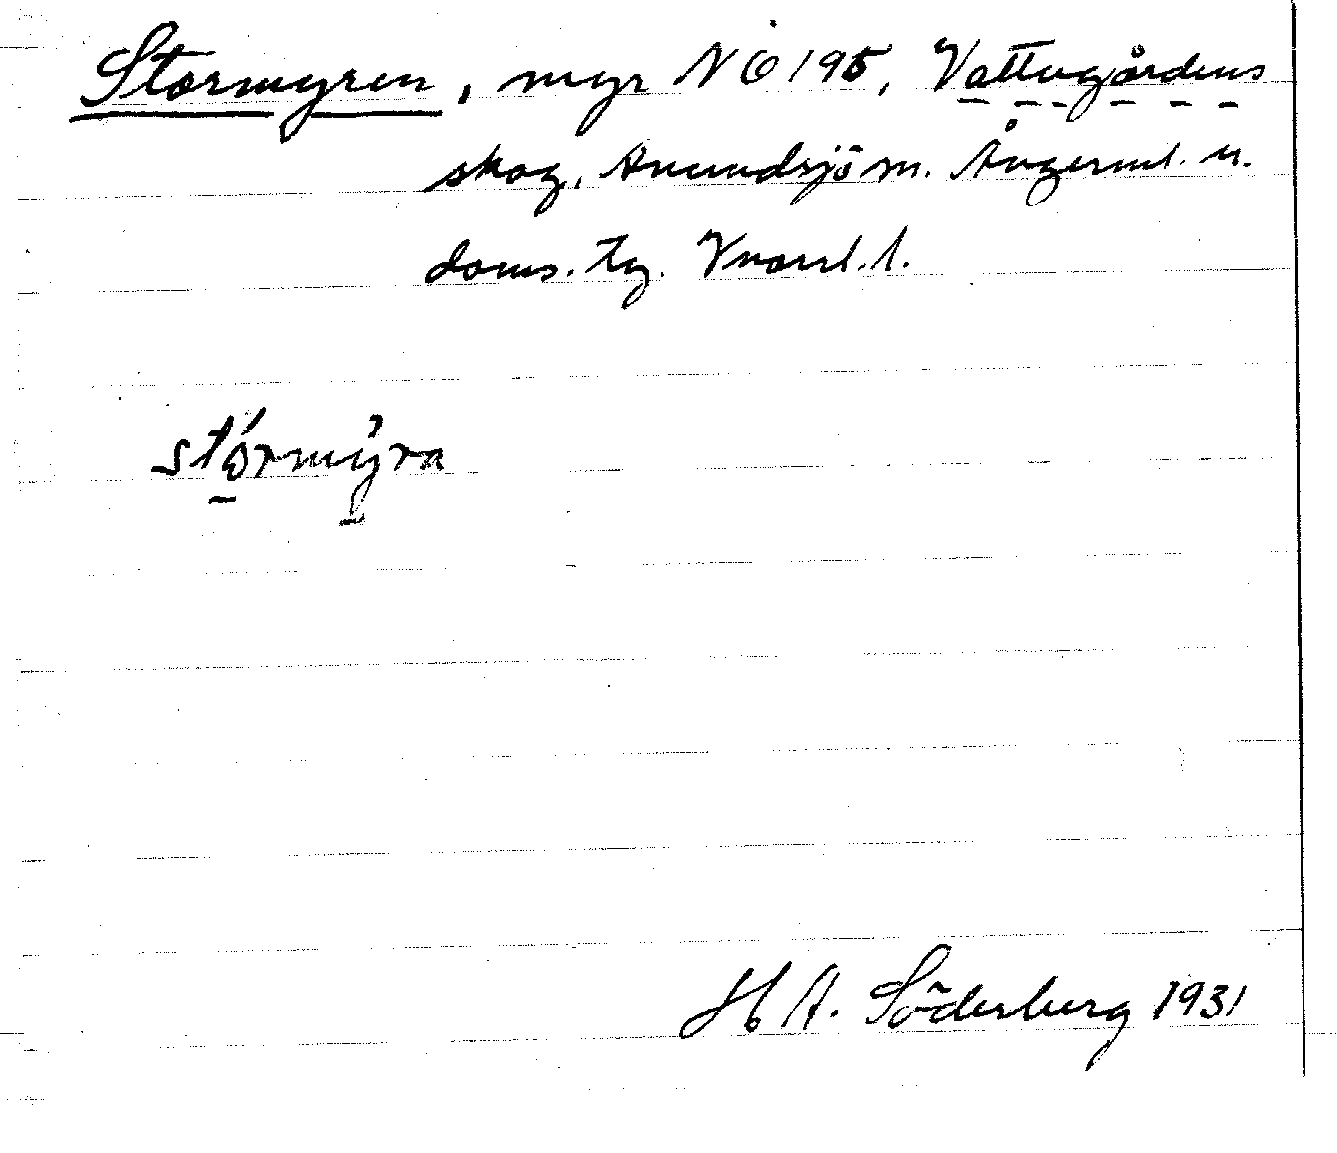 Stormyren, myr NÖ 195, Vattugårdens
skog, Anundsjö m. Ångerml. n.
doms. tg. Vnorrl. l.
stórmỳra
H A. Söderberg 1931